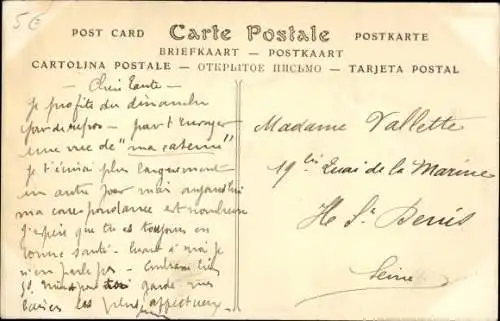 5€
POST CARD Carte Postale POSTKARTE
BRIEFKAART — POSTKAART
CARTOLINA POSTALE — ОТКРЫТОЕ ПИСЬМО — TARJETA POSTAL
— Chère Tante —
Je profite du dimanche
jour de repos — pour t'envoyer
une vue de "ma caserne"
je t'écrirai plus longuement
un autre jour mais aujourd'hui
ma correspondance est nombreuse
J'espère que tu es toujours en
bonne santé — quant à moi je
n'en parle pas —
garde mes
baisers les plus affectueux
Madame Vallette
19 bis Quai de la Marine
St Denis
Seine